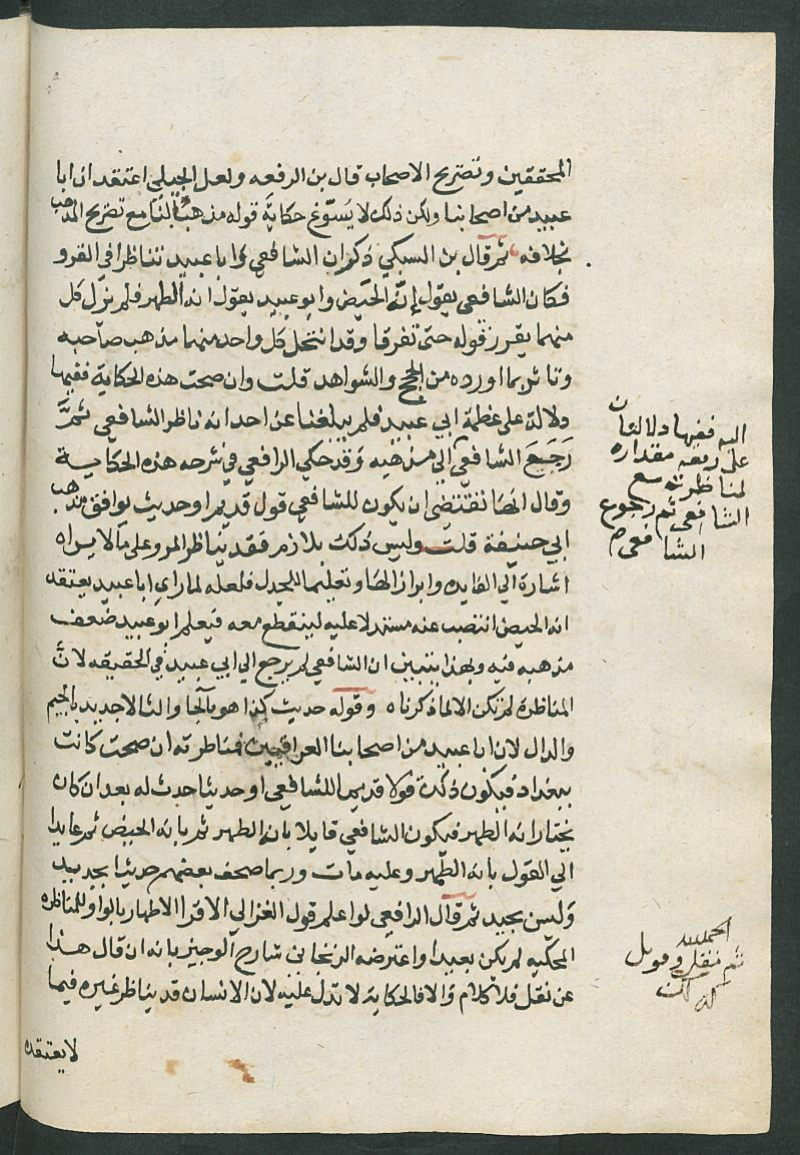 المحققين وتصريح الاصحاب قال بن الرفعه ولعل الجيلي اعتقد ان ابا
عبيد من اصحابنا ولكن ذلك لا يسوغ حكاية قوله مذهبا لنا مع تصريح المذهب
بخلافه ثم قال بن السبكي ذكر ان الشافعي وابا عبيد تناظرا في القرو
فكان الشافعي يقول إنّه الحيض وابو عبيد يقول انه الطهر فلم يزل كل
منهما يقرر قوله حتى تفرقا وقد انتحل كل واحد منهما مذهب صاحبه
وتاثر بما اورده من الحجج والشواهد قلت وان صحت هذه الحكاية ففيها
دلالة على عظمة ابي عبيد فلم يبلغنا عن احد انه ناظر الشافعي ثمَّ
رَجَعَ الشافعي الي مذهبه وقد حكي الرافعي في شرحه هذه الحكاية
وقال انها تقتضي ان يكون للشافعي قول قديم او حديث يوافق مذهب
ابي حنيفة قلت وليس ذلك بلازم فقد يناظر المرو على ما لا يراه
اشارة الي الفايده وابراز الها وتعليما للجدل فلعله لما راي ابا عبيد يعتقد
انه الحيض انتصب عنه مستدلا عليه لينقطع معه فيعلم ابو عبيد ضعف
مذهبه فيه وبهذا يتبين ان الشافعي لم يرجع الي ابي عبيد في الحقيقه لانَّ
المناظرة لم تكن الا لما ذكرناه وقوله حديث كذا هو بالحا والثا لا جديد بالجيم
والدال لان ابا عبيد من اصحابنا العراقيين فمناظرته ان صحت كانت
ببغداد فيكون ذلك قولا قديما للشافعي او حديثا حدث له بعد ان كان
يختار انه الطهر فيكون الشافعي قايلا بانه الطهر ثم بانه الحيض ثم عايدا
الي القول بانه الطهر وعليه مات وربما صحف بعضهم حديثا بجديد
وليس بجيد ثم قال الرافعي لو اعلم قول الغزالي الاقرا الاطهار بالواو للمناظره
المحكيه لم يكن بعيدا واعترضه الزنجاني شارح الوجيز بانه ان قال هذا
عن نقل فلا كلام والا فالحكاية لا تدل عليه لان الانسان قد يناظر غيره فيما
لا يعتقده
اليه ففيها دلالتان
على رفعه مقداره
لمناظرته مع
الشافعي ثم رجوع
الشافعي
الحمد لله